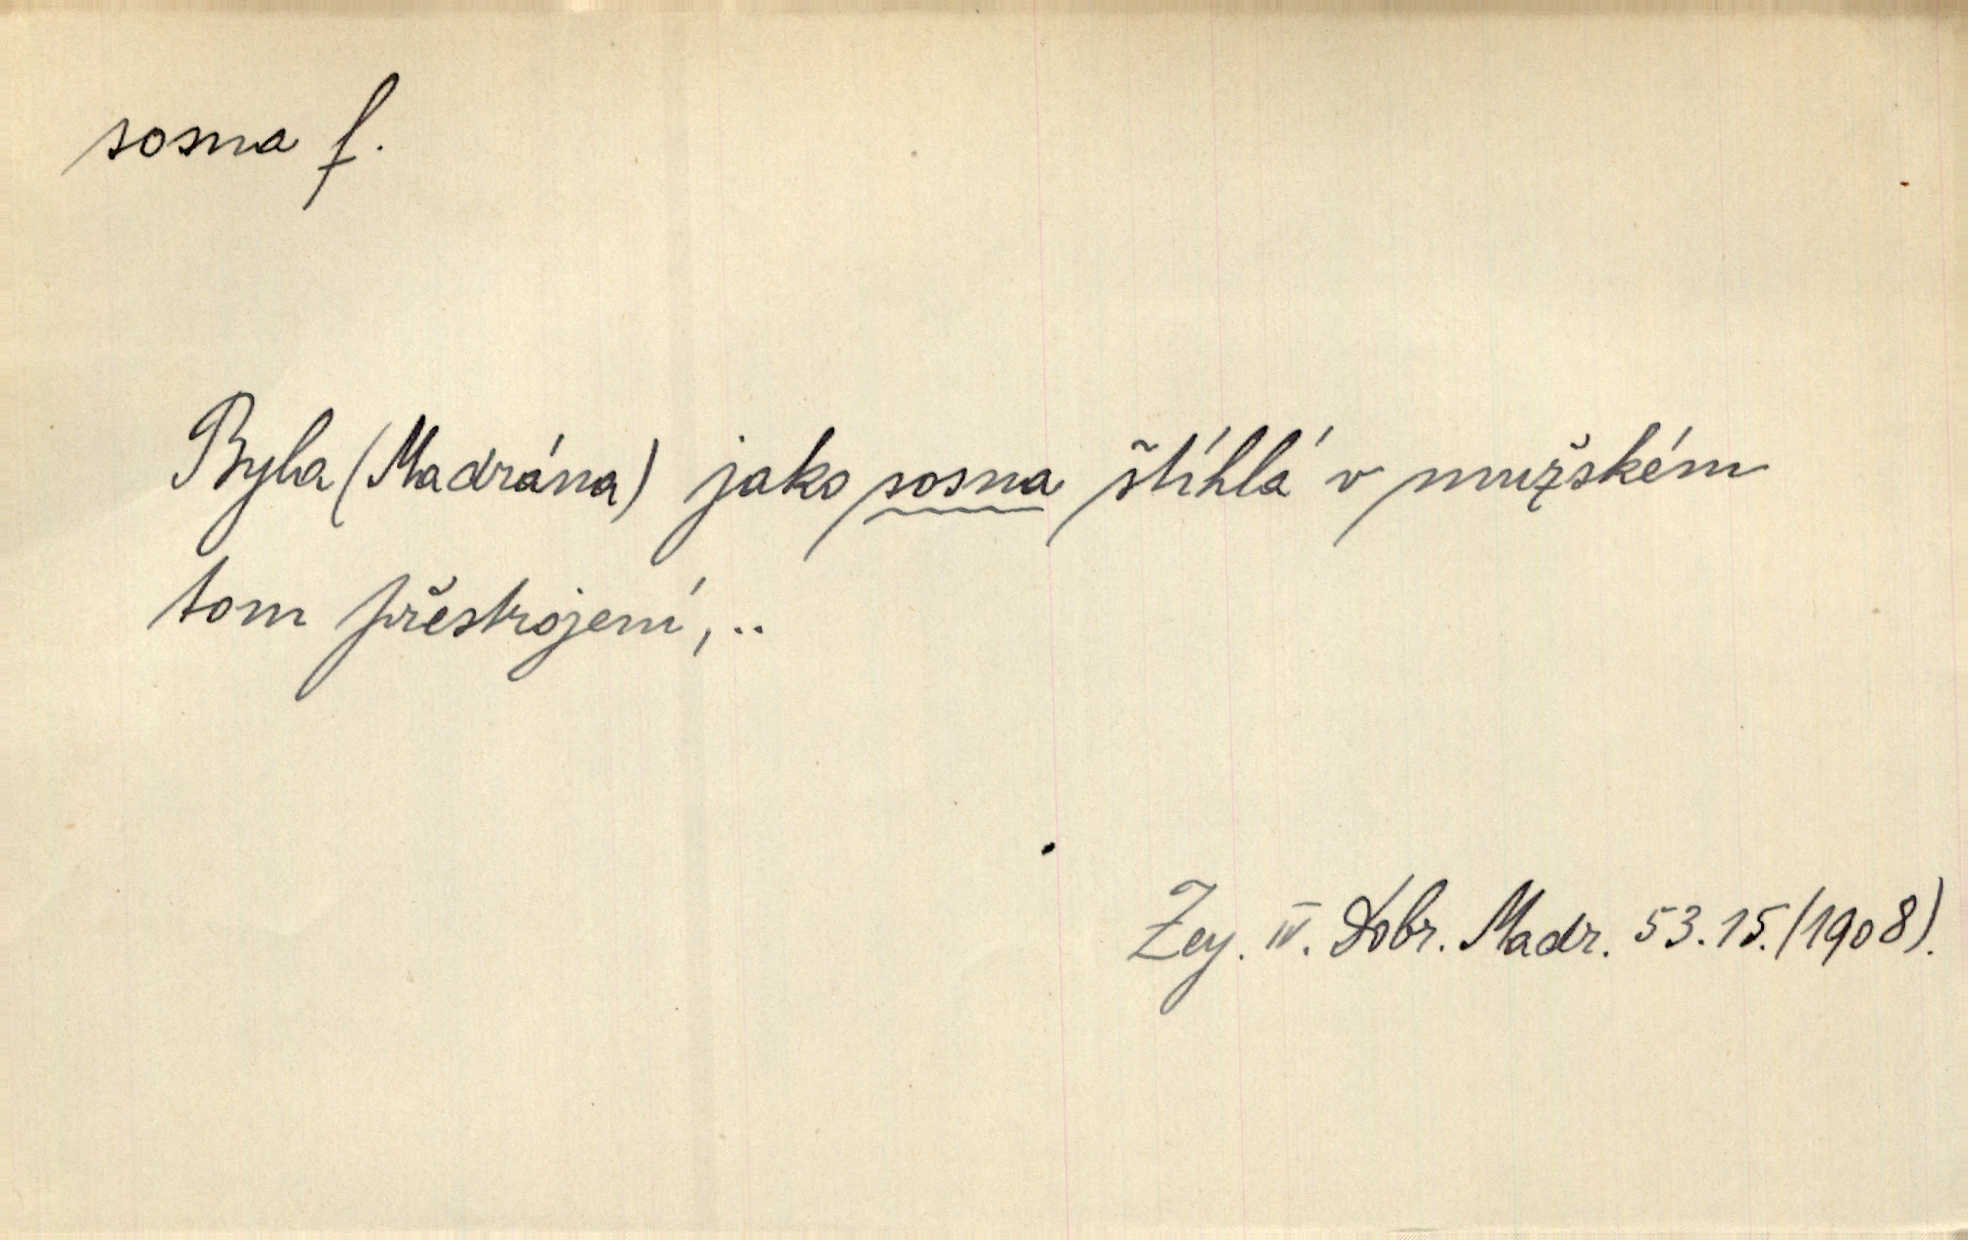 sosna f.
Byla (Madrána) jako sosna štíhlá v mužském
tom přestrojení, ..
Zey. IV. Dobr. Madr. 53.15. (1908).